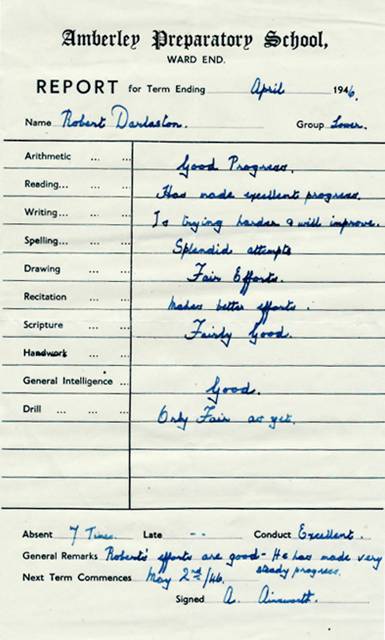 Amberley Preparatory School,
WARD END.
REPORT for Term Ending April 1946.
Name Robert Darlaston. Group Lower.
Arithmetic ... ... Good Progress.
Reading... ... ... Has made excellent progress.
Writing... ... ... Is trying harder & will improve.
Spelling... ... ... Splendid attempts
Drawing ... ... Fair Efforts.
Recitation ... ... Makes better efforts.
Scripture ... ... Fairly Good.
Handwork ... ...
General Intelligence ... Good.
Drill ... ... ... Only Fair as yet.
Absent 7 Times. Late -- Conduct Excellent.
General Remarks Roberts' efforts are good - He has made very
steady progress.
Next Term Commences May 2nd/46.
Signed A. Ainsworth.